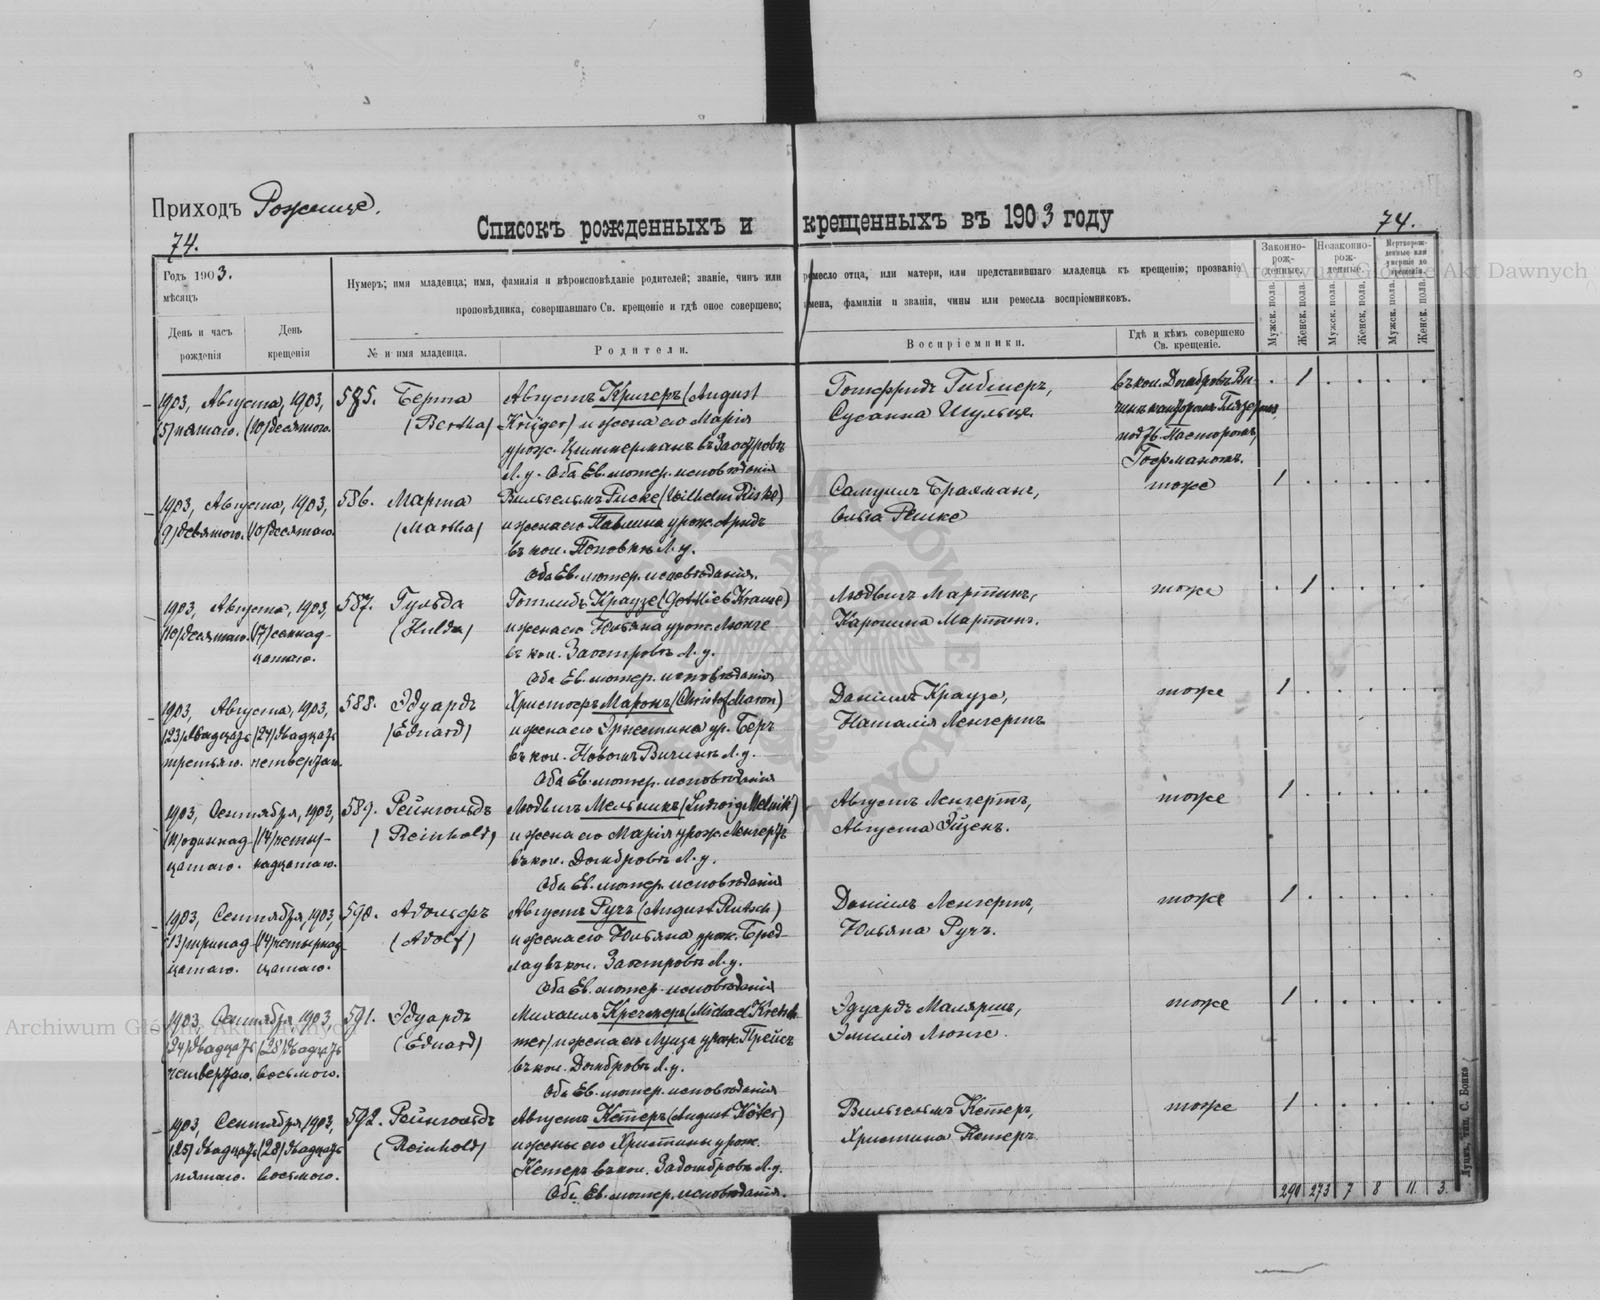 Приходъ Рожище.
74.
Списокъ рожденныхъ и крещенныхъ въ 1903 году
74.
Годъ 1903.
мѣсяцъ
День и часъ рожденія
День крещенія
Нумеръ; имя младенца; имя, фамилія и вѣроисповѣданіе родителей; званіе, чинъ или ремесло отца, или матери, или представившаго младенца къ крещенію; прозваніе
проповѣдника, совершавшаго Св. крещеніе и гдѣ оное совершено; имена, фамиліи и званія, чины или ремесла воспріемниковъ.
№ и имя младенца.
Родители.
Воспріемники.
Гдѣ и кѣмъ совершено
Св. крещеніе.
Законно-рож-денные.
Незаконно-рож-денные.
Мертворож-денные или умершіе до крещенія.
Мужск. пола.
Женск. пола.
Мужск. пола.
Женск. пола.
Мужск. пола.
Женск. пола.
1903, Августа, 1903, 585. Берта Августъ Кригеръ (August Готфридъ Гиблмеръ, въ кол. Домбровъ Ви- . 1 . . . .
(5) пятаго. (10) десятаго. (Bertha) Krüger) и жена его Марія Сусанна Шульце
урож. Циммерманъ въ Заостровъ под. Пасторомъ,
Л. у. Оба Ев. лютер. исповѣданія Гофманомъ.
1903, Августа, 1903, 586. Марта Вильгельмъ Риске (Wilhelm Riske) Самуилъ Бралманъ, тоже 1 . . . . .
(9) девятаго. (10) десятаго. (Martha) и жена его Павлина урож. Арндъ Ольга Риске
въ кол. Поповка Л. у.
Оба Ев. лютер. исповѣданія.
1903, Августа, 1903, 587. Гульда Готлибъ Краузе (Gottlieb Krause) Людвигъ Мартинъ, тоже . 1 . . . .
(10) десятаго. (17) семнад- (Hulda) и жена его Юльяна урож. Люнге Каролина Мартинъ.
цатаго. въ кол. Заостровъ Л. у.
Оба Ев. лютер. исповѣданія
1903, Августа, 1903, 588. Эдуардъ Христофъ Маронъ (Christof Maron) Даніилъ Краузе, тоже 1 . . . . .
(23) двадцать (24) двадцать (Eduard) и жена его Эрнестина ур. Беръ Наталія Ленгертъ
третьяго. четвертаго. въ кол. Новомъ Вичинѣ Л. у.
Оба Ев. лютер. исповѣданія
1903, Сентября, 1903, 589. Рейнгольдъ Людвигъ Мельникъ (Ludwig Melnik) Августъ Ленгертъ, тоже 1 . . . . .
(11) одиннад- (14) четыр- (Reinhold) и жена его Марія урож. Ленгертъ Августа Эйценъ.
цатаго. надцатаго. въ кол. Домбровъ Л. у.
Оба Ев. лютер. исповѣданія
1903, Сентября, 1903, 590. Адольфъ АвгустъРучъ (August Rutsch) Даніилъ Ленгертъ, тоже 1 . . . . .
(13) тринад- (14) четырнад- (Adolf) и жена его Юльяна урож. Бред- Юльяна Ручъ.
цатаго. цатаго. лау въ кол. Заостровъ Л. у.
Оба Ев. лютер. исповѣданія
1903, Сентября, 1903, 591. Эдуардъ Михаилъ Кречмеръ (Michael Kretsch- Эдуардъ Маляришъ, тоже 1 . . . . .
(24) двадцать (28) двадцать (Eduard) mer) и жена его Луиза урож. Прейсъ Эмилія Люнге.
четвертаго. восьмого. въ кол. Домбровъ Л. у.
Оба Ев. лютер. исповѣданія
1903, Сентября, 1903, 592. Рейнгольдъ Августъ Кетеръ (August Köter) Вильгельмъ Кетеръ, тоже 1 . . . . .
(25) двадцать (28) двадцать (Reinhold) и жены его Христины урож. Христина Кетеръ
пятаго. восьмого. Кетеръ въ кол. Задомбровъ Л. у.
Оба Ев. лютер. исповѣданія.
290 273 7 8 11. 3.
Луцкъ, тип. С. Бонко
Archiwum Główne Akt Dawnych
Archiwum Główne Akt Dawnych